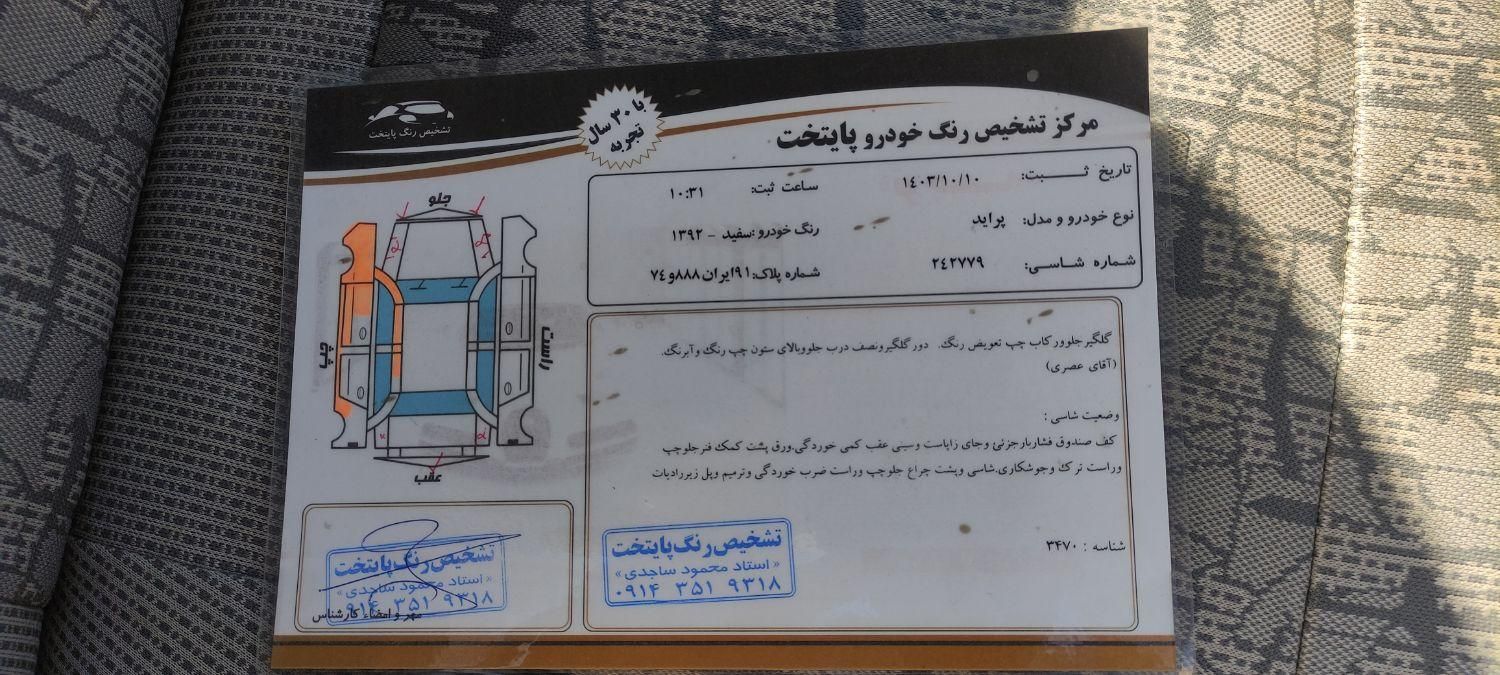 تشخیص رنگ پایتخت
با ۳۰ سال
تجربه
مرکز تشخیص رنگ خودرو پایتخت
تاریخ ثبت: ۱٤۰۳/۱۰/۱۰ ساعت ثبت: ۱۰:۳۱
نوع خودرو و مدل: پراید رنگ خودرو: سفید - ۱۳۹۲
شماره شاسی: ۲٤۲۷۷۹ شماره پلاک: ۹۱ایران۸۸۸و۷٤
جلو
چپ
راست
عقب
گلگیرجلوورکاب چپ تعویض رنگ. دور گلگیرونصف درب جلووبالای ستون چپ رنگ وآبرنگ.
(آقای عصری)
وضعیت شاسی :
کف صندوق فشاربارجزئی وجای زاپاست وسینی عقب کمی خوردگی.ورق پشت کمک فنرجلوچپ
وراست ترک وجوشکاری.شاسی وپشت چراغ جلوچپ وراست ضرب خوردگی وترمیم وپل زیررادیات
شناسه : ۳٤۷۰
تشخیص رنگ پایتخت
« استاد محمود ساجدی »
۰۹۱۴ ۳۵۱ ۹۳۱۸
تشخیص رنگ پایتخت
« استاد محمود ساجدی »
۰۹۱۴ ۳۵۱ ۹۳۱۸
مهر و امضاء کارشناس